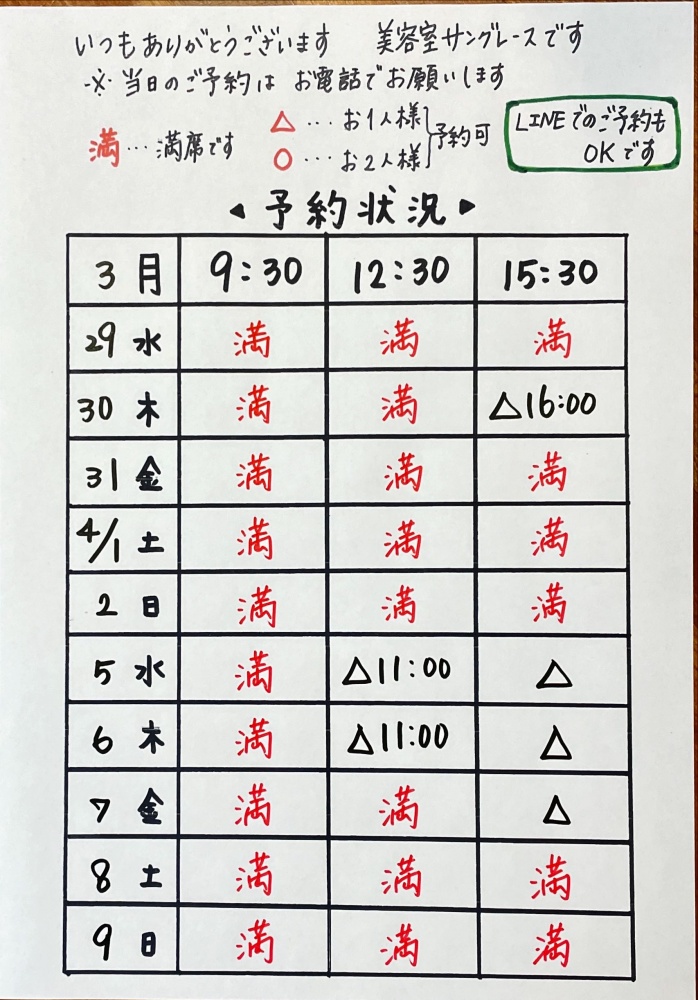 いつもありがとうございます 美容室サングレースです
※当日のご予約は お電話でお願いします
満…満席です
△…お1人様
○…お2人様
予約可
LINEでのご予約も
OKです
◀予約状況▶
3月 9:30 12:30 15:30
29 水 満 満 満
30 木 満 満 △16:00
31 金 満 満 満
4/1 土 満 満 満
2 日 満 満 満
5 水 満 △11:00 △
6 木 満 △11:00 △
7 金 満 満 △
8 土 満 満 満
9 日 満 満 満